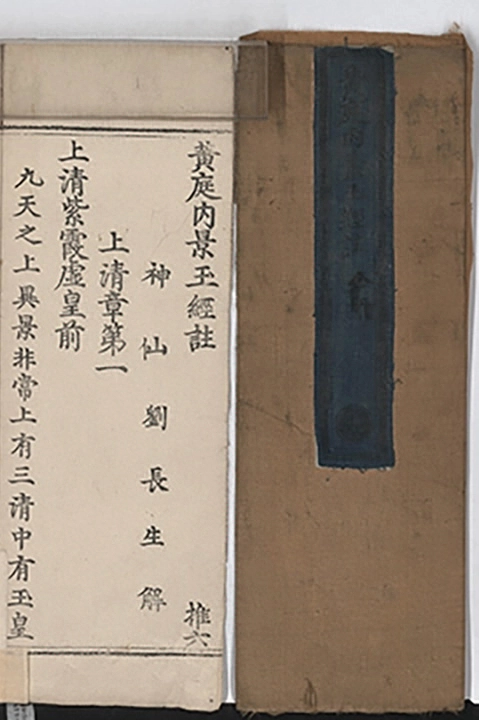 黃庭內景玉經註
推六
神仙劉長生解
上清章第一
上清紫霞虛皇前
九天之上異景非常上有三清中有玉皇